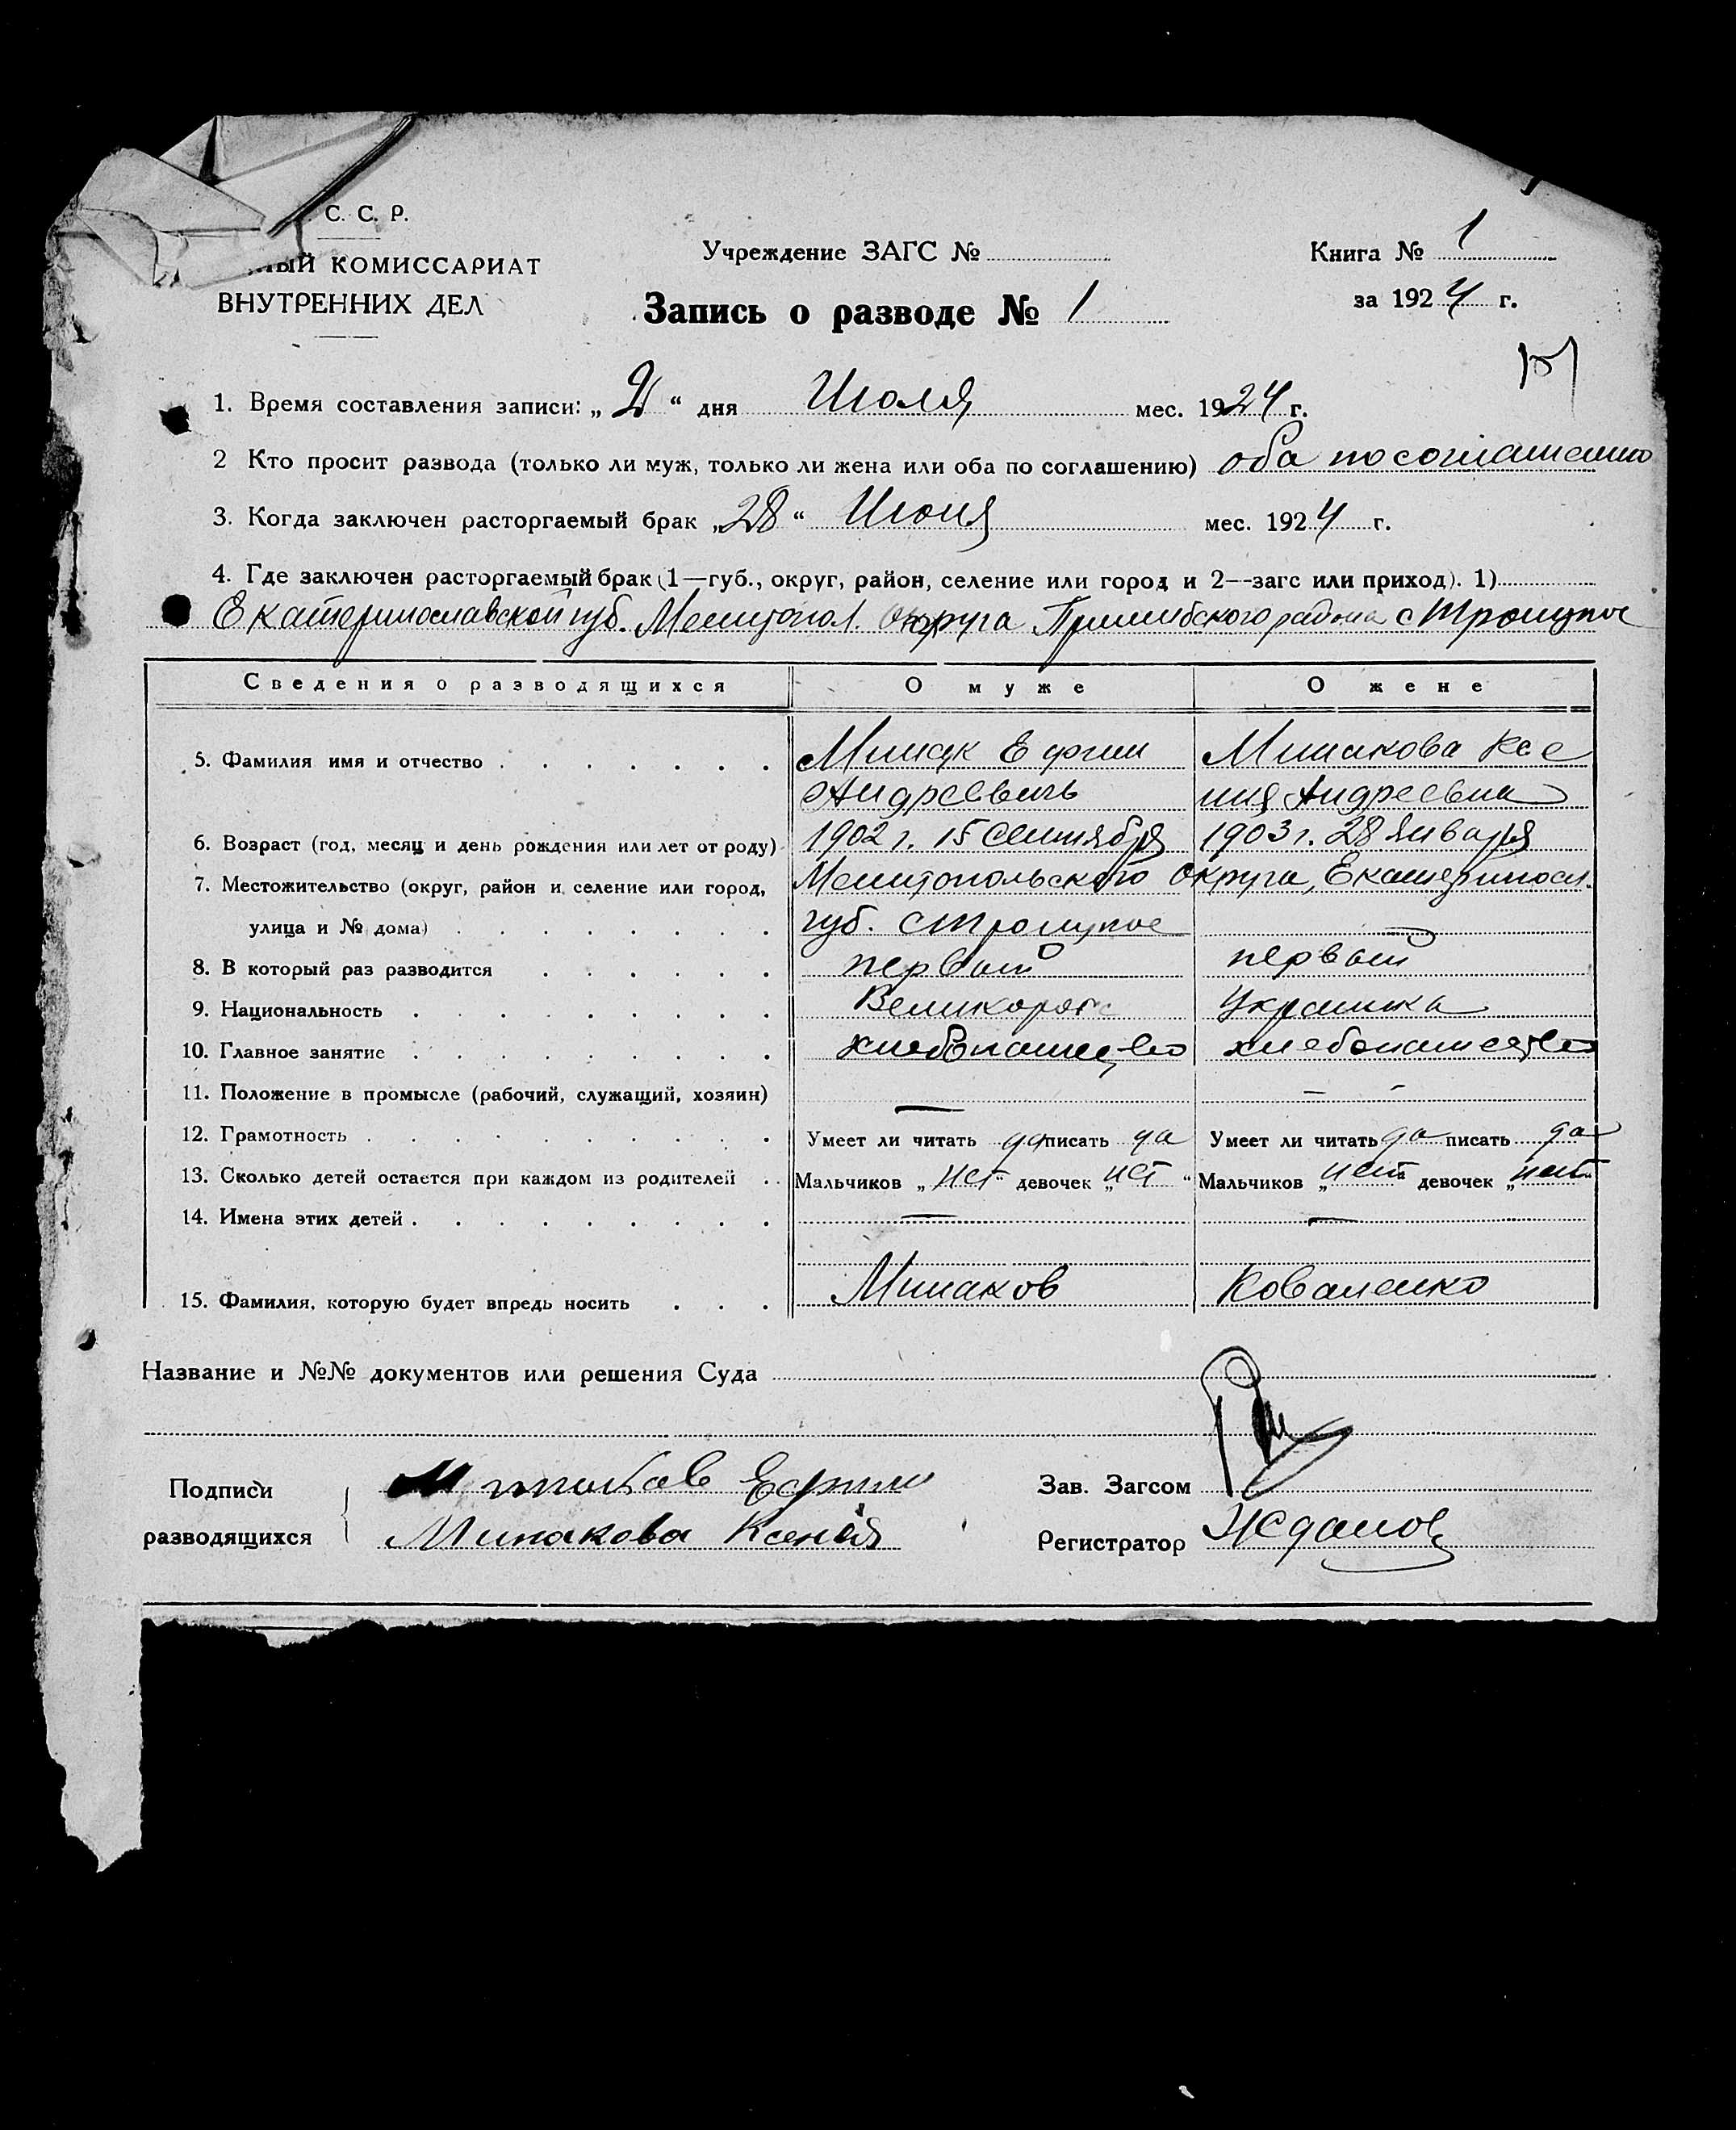 С. С. Р.
НЫЙ КОМИССАРИАТ
ВНУТРЕННИХ ДЕЛ
Учреждение ЗАГС №
Запись о разводе № 1
Книга № 1
за 1924 г.
1. Время составления записи: „ “ дня Июля мес. 1924 г.
2 Кто просит развода (только ли муж, только ли жена или оба по соглашению) оба по соглашению
3. Когда заключен расторгаемый брак „28“ Июня мес. 1924 г.
4. Где заключен расторгаемый брак (1—губ., округ, район, селение или город и 2—загс или приход). 1)
Екатеринославской губ. Мелитопол. Округа Пришибского района с Троицкое
Сведения о разводящихся О муже О жене
5. Фамилия имя и отчество Ефим Минакова Ксе
Андреевичь ния Андреевна
6. Возраст (год, месяц и день рождения или лет от роду) 1902 г. 15 Сентября 1903 г. 28 Января
7. Местожительство (округ, район и селение или город, Мелитопольского Округа, Екатериносл.
улица и № дома) губ. с Троицкое
8. В который раз разводится первый первый
9. Национальность Великорос Украинка
10. Главное занятие хлебопашество хлебопашество
11. Положение в промысле (рабочий, служащий, хозяин) — — -
12. Грамотность Умеет ли читать да писать да Умеет ли читать да писать да
13. Сколько детей остается при каждом из родителей Мальчиков „нет“ девочек „нет“ Мальчиков „нет“ девочек „нет“
14. Имена этих детей — —
15. Фамилия, которую будет впредь носить Минаков Коваленко
Название и №№ документов или решения Суда
Подписи Минаков Ефим Зав. Загсом
разводящихся Минакова Ксения Регистратор Жданов